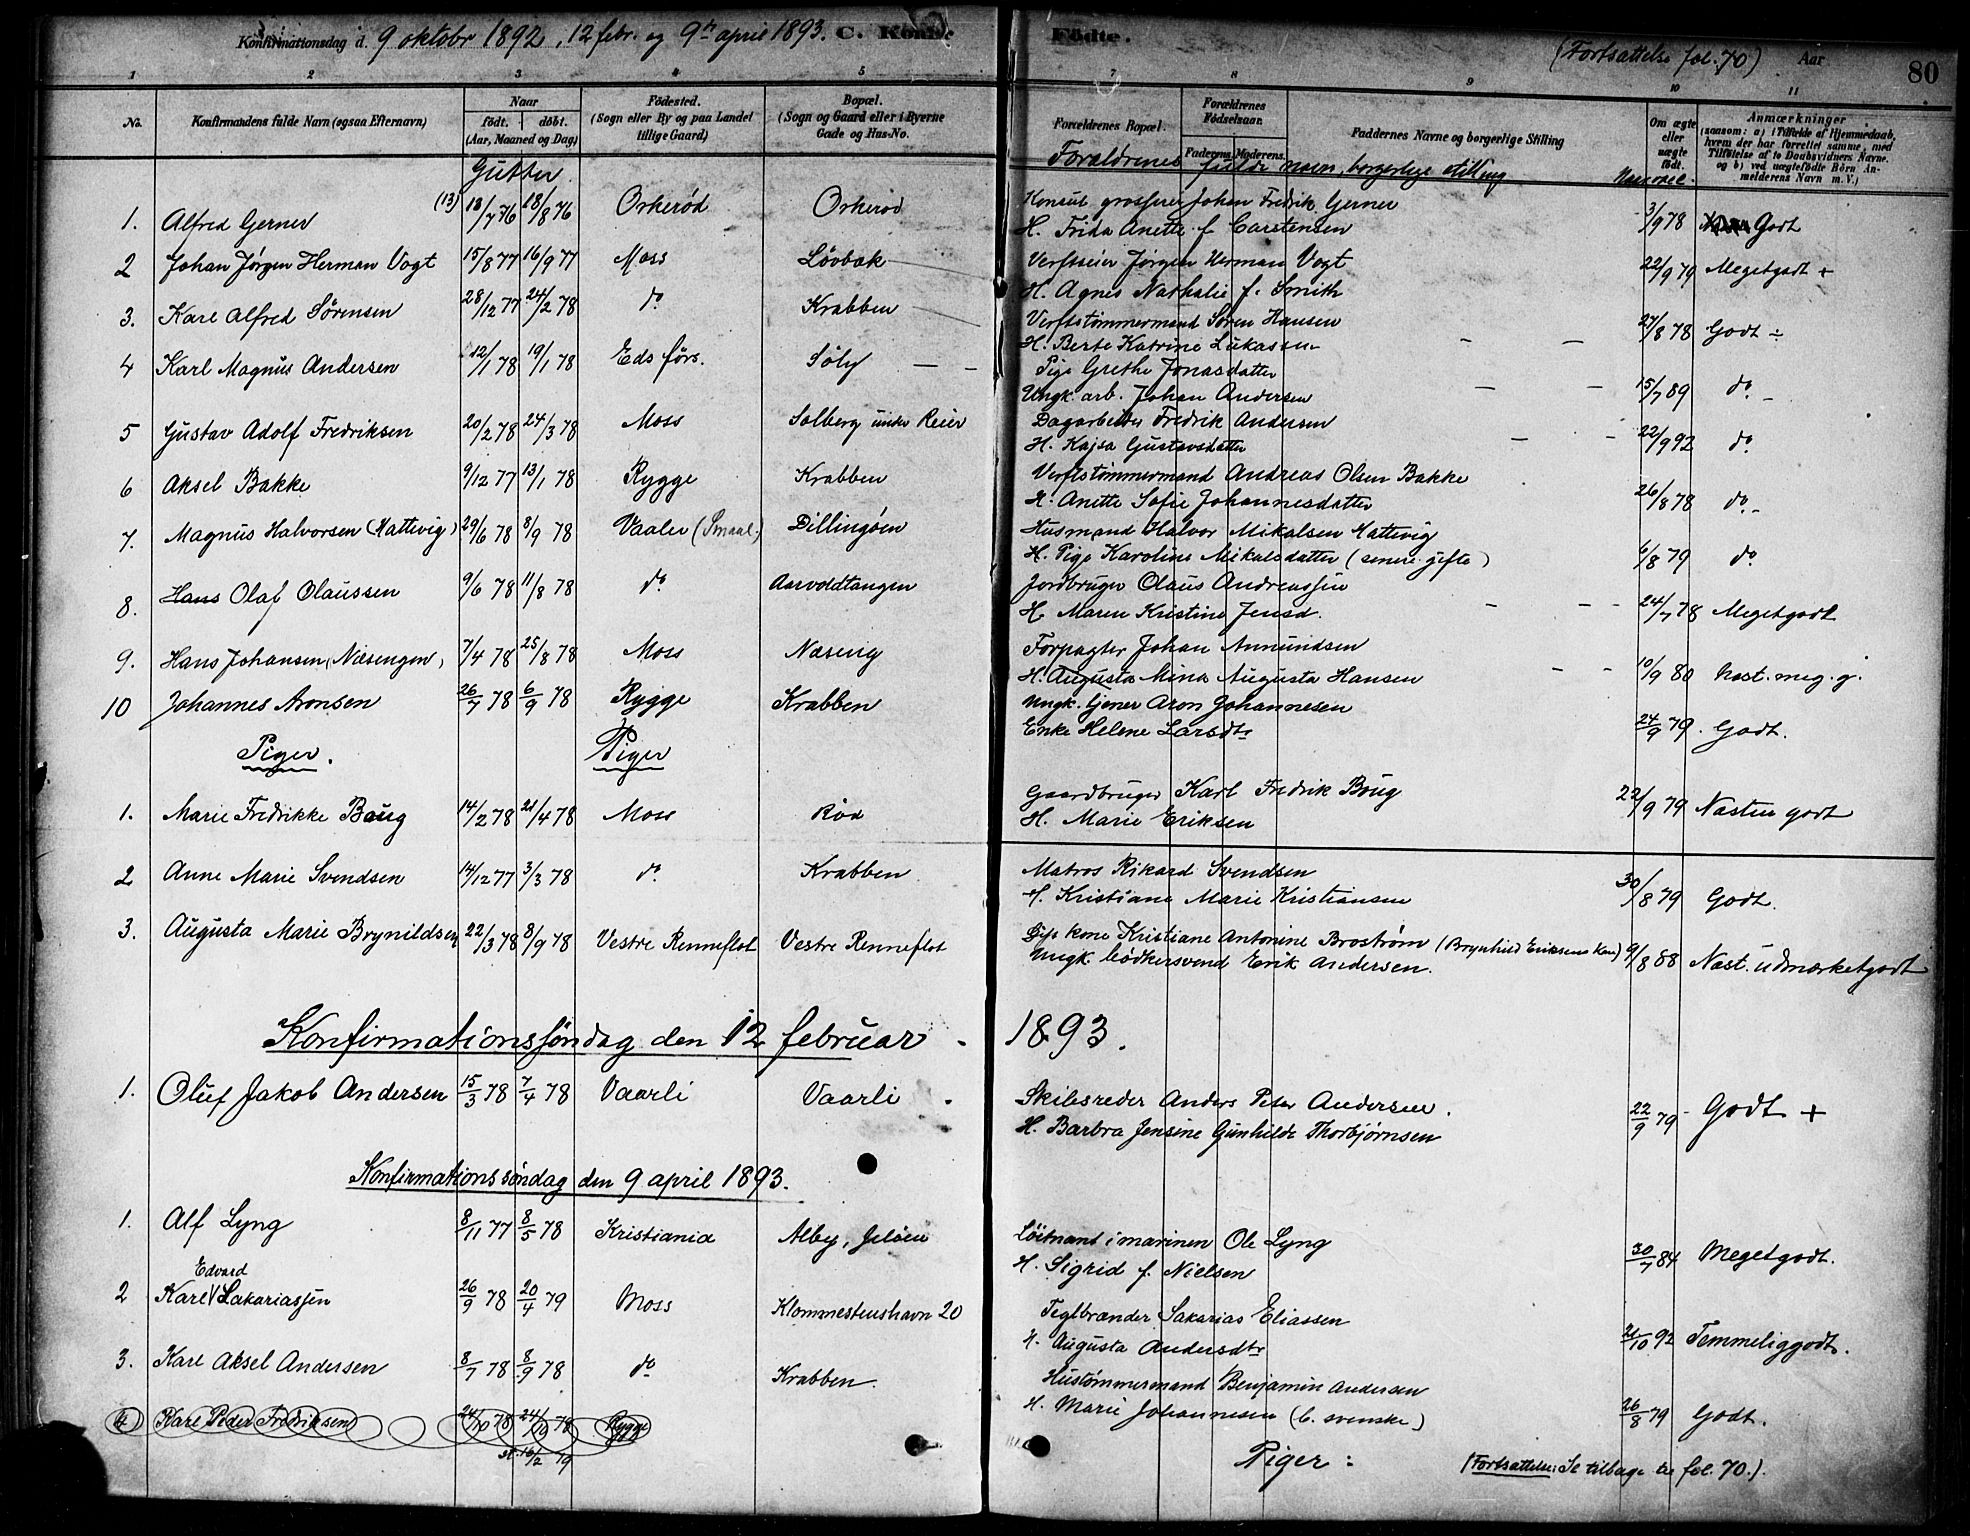 Konfirmationsdag d. 9 oktobr 1892, 12 febr. og 9de april 1893. C. Kønne Fødte. (Fortsættelse fol. 70) Aar 80
1 2 3 4 5 7 8 9 10 11
No. Konfirmandens fulde Navn (ogsaa Efternavn) Naar født. døbt. (Aar, Maaned og Dag) Fødested. (Sogn eller By og paa Landet tillige Gaard) Bopæl. (Sogn og Gaard eller i Byerne Gade og Hus-No.
Forældrenes Bopæl. Forældrenes Fødselsaar. Faderens. Moderens. Faddernes Navne og borgerlige Stilling Om ægte eller uægte født. Anmærkninger (saasom: a) i Tilfælde af Hjemmedaab, hvem der har forrettet samme, med Tilføielse af to Daabsvidners Navne. og b) ved uægtefødte Børn Anmelderens Navn m. V.)
Forældrenes fulde navn, borgerlige stilling Naar vacc.
Gutter
1. Alfred Gerner (13) 18/7 76 18/8 76 Orkerød Orkerød Konsul grosserer Johan Fredrik Gerner
H. Frida Anette f. Carstensen 3/9 78 Godt
2 Johan Jørgen Herman Vogt 15/8 77 16/9 77 Moss Løvbak Verftseier Jørgen Herman Vogt
H. Agnes Nathalie f. Smith 22/9 79 Megetgodt +
3. Karl Alfred Sørensen 28/12 77 24/2 78 do Krabben Verftstømmermand Søren Hansen
H. Berte Katrine Lukassen 27/8 78 Godt ÷
4 Karl Magnus Andersen 12/1 78 19/1 78 Eds førs. Søly Pige Grethe Jonasdatter
Ungk. arb. Johan Andersen 15/7 89 do
5 Gustav Adolf Fredriksen 20/2 78 24/3 78 Moss Solberg under Reier Dagarbeider Fredrik Andersen
H. Kajsa Gustavsdatter 22/9 92 do
6 Aksel Bakke 9/12 77 13/1 78 Rygge Krabben Verftstømmermand Andreas Olsen Bakke
H. Anette Sofie Johannesdatter 26/8 78 do
7. Magnus Halvorsen (Hattevig) 29/6 78 8/9 78 Vaaler (Smaal.) Dillingøen Husmand Halvor Mikalsen Hattevig
H. Pige Karoline Mikalsdatter (senere gifte) 6/8 79 do
8. Hans Olaf Olaussen 9/6 78 11/8 78 do Aarvoldtangen Jordbruger Olaus Andreassen
H. Maren Kristine Jensd. 24/7 78 Megetgodt
9. Hans Johansen (Næsengen) 7/4 78 25/8 78 Moss Næseng Forpagter Johan Amundsen
H. Augusta Mina Augusta Hansen 10/9 80 Næst. meg. g.
10 Johannes Aronsen 26/7 78 6/9 78 Rygge Krabben Ungk. tjener Aron Johannesen
Enke Helene Larsdtr 24/9 79. Godt.
Piger. Piger
1. Marie Fredrikke Boug 14/2 78 21/4 78 Moss Rød Gaardbruger Karl Fredrik Boug
H. Marie Eriksen 22/9 79 Næsten godt
2 Anne Marie Svendsen 14/12 77 3/3 78 do Krabben Matros Rikard Svendsen
H. Kristiane Marie Kristiansen 30/8 79 Godt.
3. Augusta Marie Brynildsen 22/3 78 8/9 78 Vestre Renneflot Vestre Renneflot kone Kristiane Antonine Brostrøm (Brynhild Eriksens kone)
Ungk. bødkersvend Erik Andersen. 9/8 88 Næst. udmærketgodt
Konfirmationssøndag den 12 februar 1893.
1. Oluf Jakob Andersen 15/3 78 7/4 78 Vaarli Vaarli Skibsreder Anders Peter Andersen.
H. Barbra Jensine Gunhilde Thorbjørnsen 22/9 79 Godt +
Konfirmationssøndag den 9 april 1893.
1. Alf Lyng 8/11 77 8/5 78 Kristiania Alby, Jeløen Løitnant i marinen Ole Lyng
H. Sigrid f. Nielsen 30/7 84 Megetgodt.
Edvard
2 Karl Sakariassen 26/9 78 20/4 79 Moss Klommestenshavn 20 Teglbrænder Sakarias Eliassen
H. Augusta Andersdtr 21/10 92 Temmeliggodt.
3. Karl Aksel Andersen 8/7 78 8/9 78 do Krabben. Hustømmermand Benjamin Andersen
H. Marie Johannesen (b. svenske) 26/8 79 Godt.
4 Karl Peder Fredriksen 24/10 78 24/10 78 Rygge
st. 16/2 79
Piger: (Fortsættelse: Se tilbage til fol. 70.)